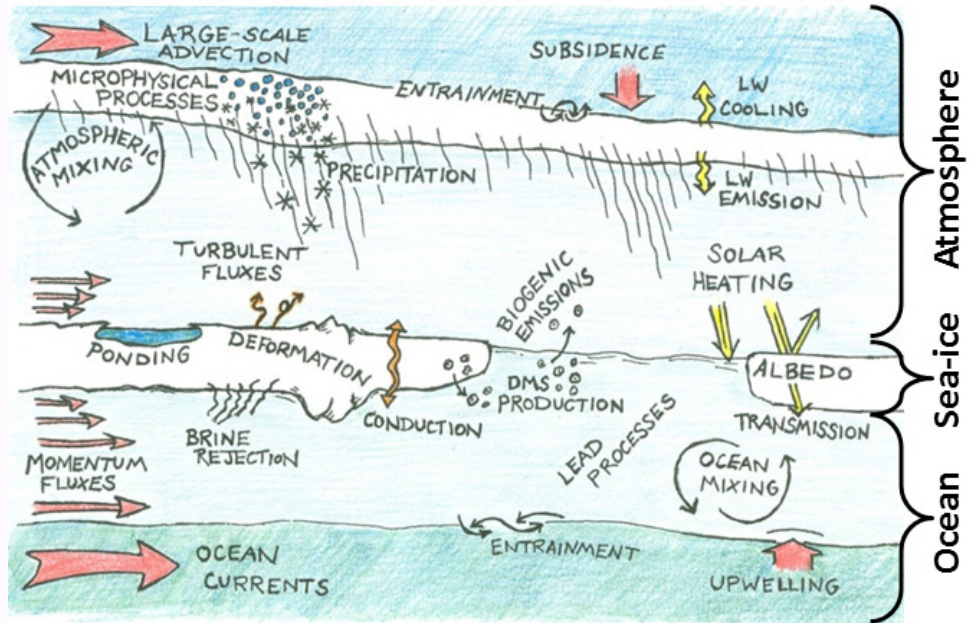 LARGE-SCALE
ADVECTION
SUBSIDENCE
MICROPHYSICAL
PROCESSES
ENTRAINMENT
LW
COOLING
ATMOSPHERIC
MIXING
PRECIPITATION
LW
EMISSION
TURBULENT
FLUXES
BIOGENIC
EMISSIONS
SOLAR
HEATING
PONDING
DEFORMATION
ALBEDO
DMS
PRODUCTION
CONDUCTION
TRANSMISSION
BRINE
REJECTION
LEAD
PROCESSES
MOMENTUM
FLUXES
OCEAN
MIXING
ENTRAINMENT
OCEAN
CURRENTS
UPWELLING
Atmosphere
Sea-ice
Ocean